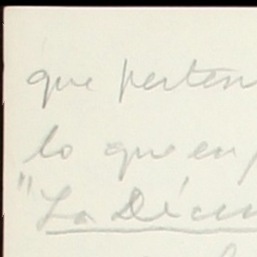 que perten
lo que en
"La Décim